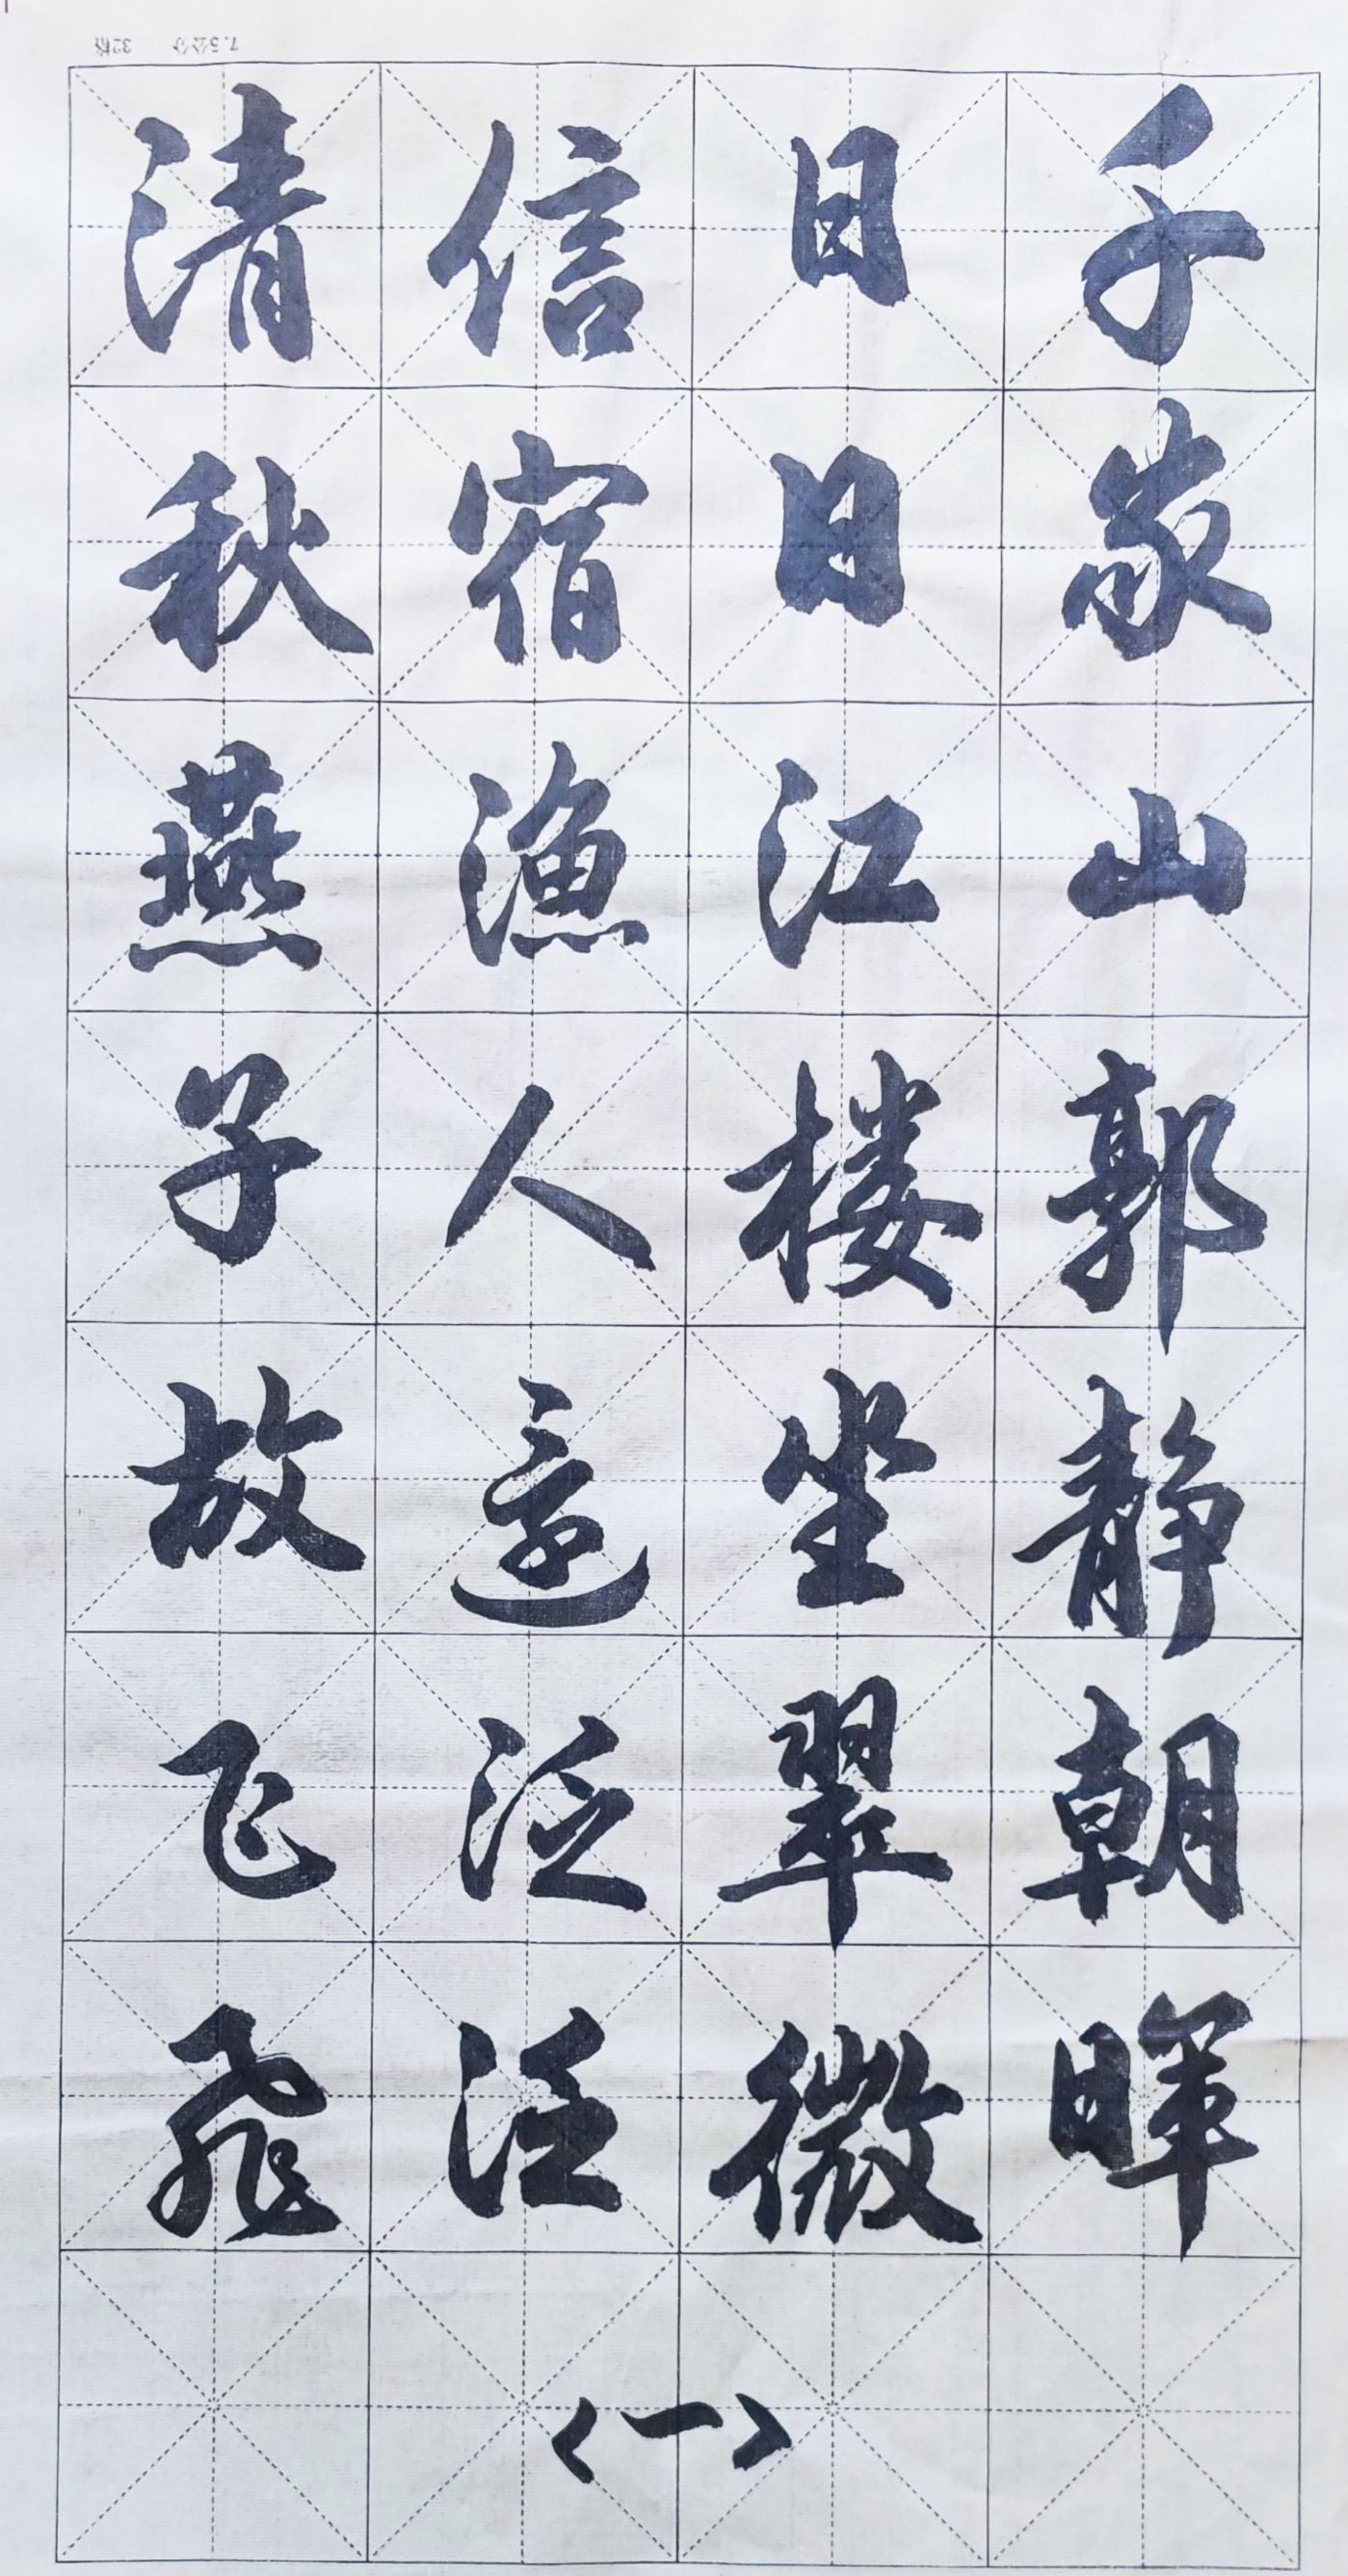 千家山郭静朝晖
日日江楼坐翠微
信宿渔人还泛泛
清秋燕子故飞飛
〈一〉
7.5公分 32格